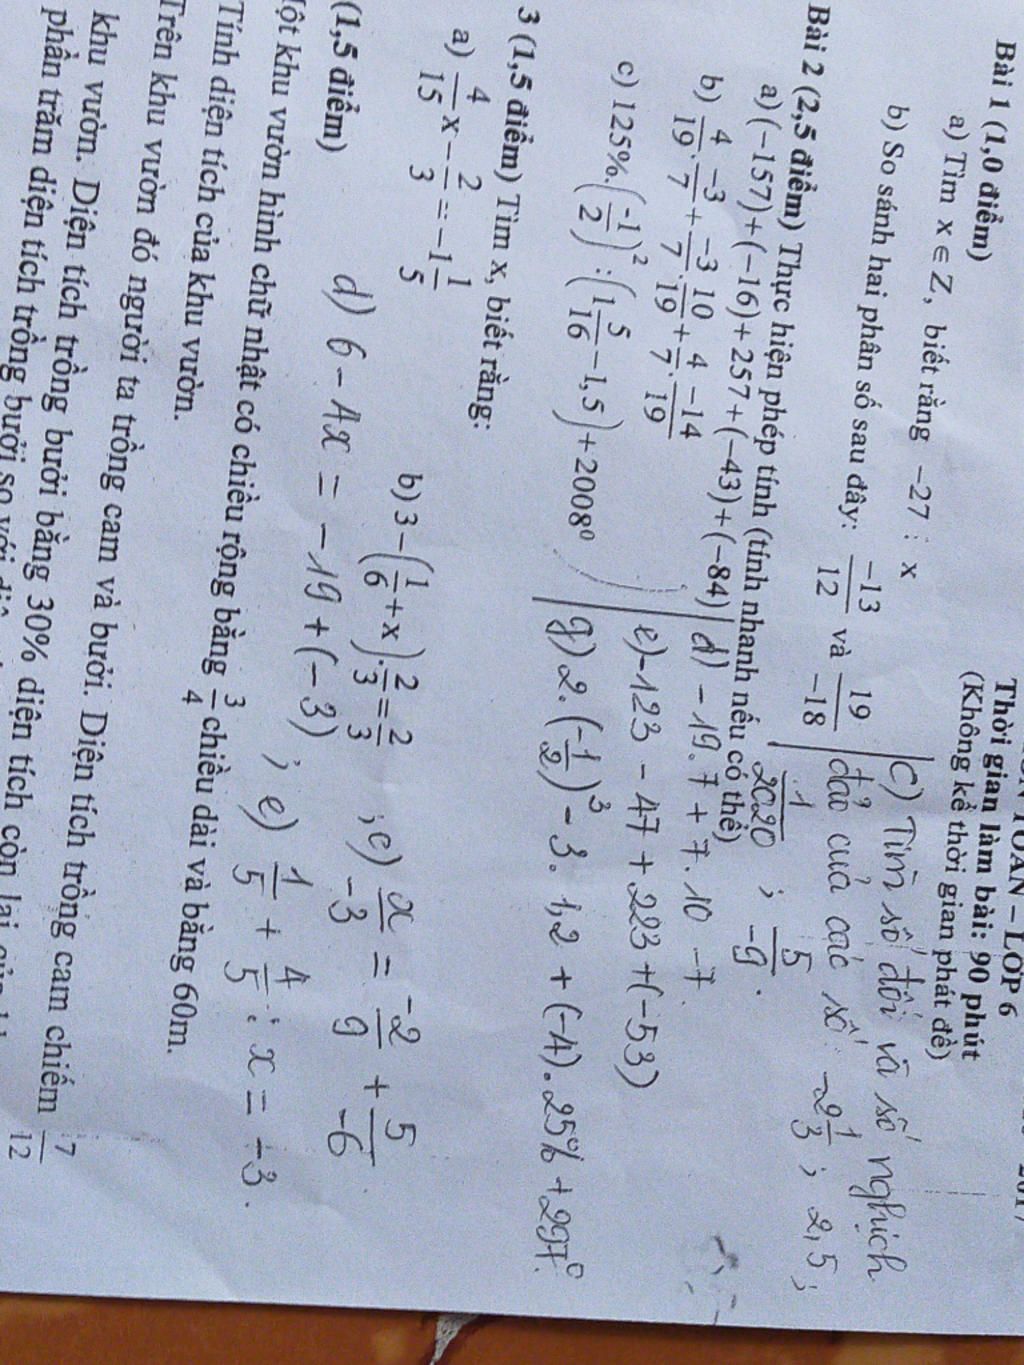 TOÁN – LỚP 6
Thời gian làm bài: 90 phút
(Không kể thời gian phát đề)
Bài 1 (1,0 điểm)
a) Tìm x ∈ Z, biết rằng −27 ⋮ x
b) So sánh hai phân số sau đây: −13/12 và 19/−18
c) Tìm số đối và số nghịch
đảo của các số: −2 1/3 ; 2,5 ;
1/2020 ; 5/−9 .
Bài 2 (2,5 điểm) Thực hiện phép tính (tính nhanh nếu có thể)
a) (−157) + (−16) + 257 + (−43) + (−84)
b) 4/19 . −3/7 + −3/7 . 10/19 + 4/7 . −14/19
c) 125%.(−1/2)² : (1 5/16 − 1,5) + 2008⁰
d) − 19. 7 + 7. 10 − 7.
e) −123 − 47 + 223 + (−53)
g) 2. (−1/2)³ − 3. 1,2 + (−4). 25% + 297⁰.
3 (1,5 điểm) Tìm x, biết rằng:
a) 4/15 x − 2/3 = −1 1/5
b) 3 − (1/6 + x). 2/3 = 2/3
; c) x/−3 = −2/9 + 5/−6
d) 6 − 4x = − 19 + (− 3) ; e) 1/5 + 4/5 : x = −3.
(1,5 điểm)
ột khu vườn hình chữ nhật có chiều rộng bằng 3/4 chiều dài và bằng 60m.
Tính diện tích của khu vườn.
Trên khu vườn đó người ta trồng cam và bưởi. Diện tích trồng cam chiếm 7/12
khu vườn. Diện tích trồng bưởi bằng 30% diện tích còn lại
phần trăm diện tích trồng bưởi so với